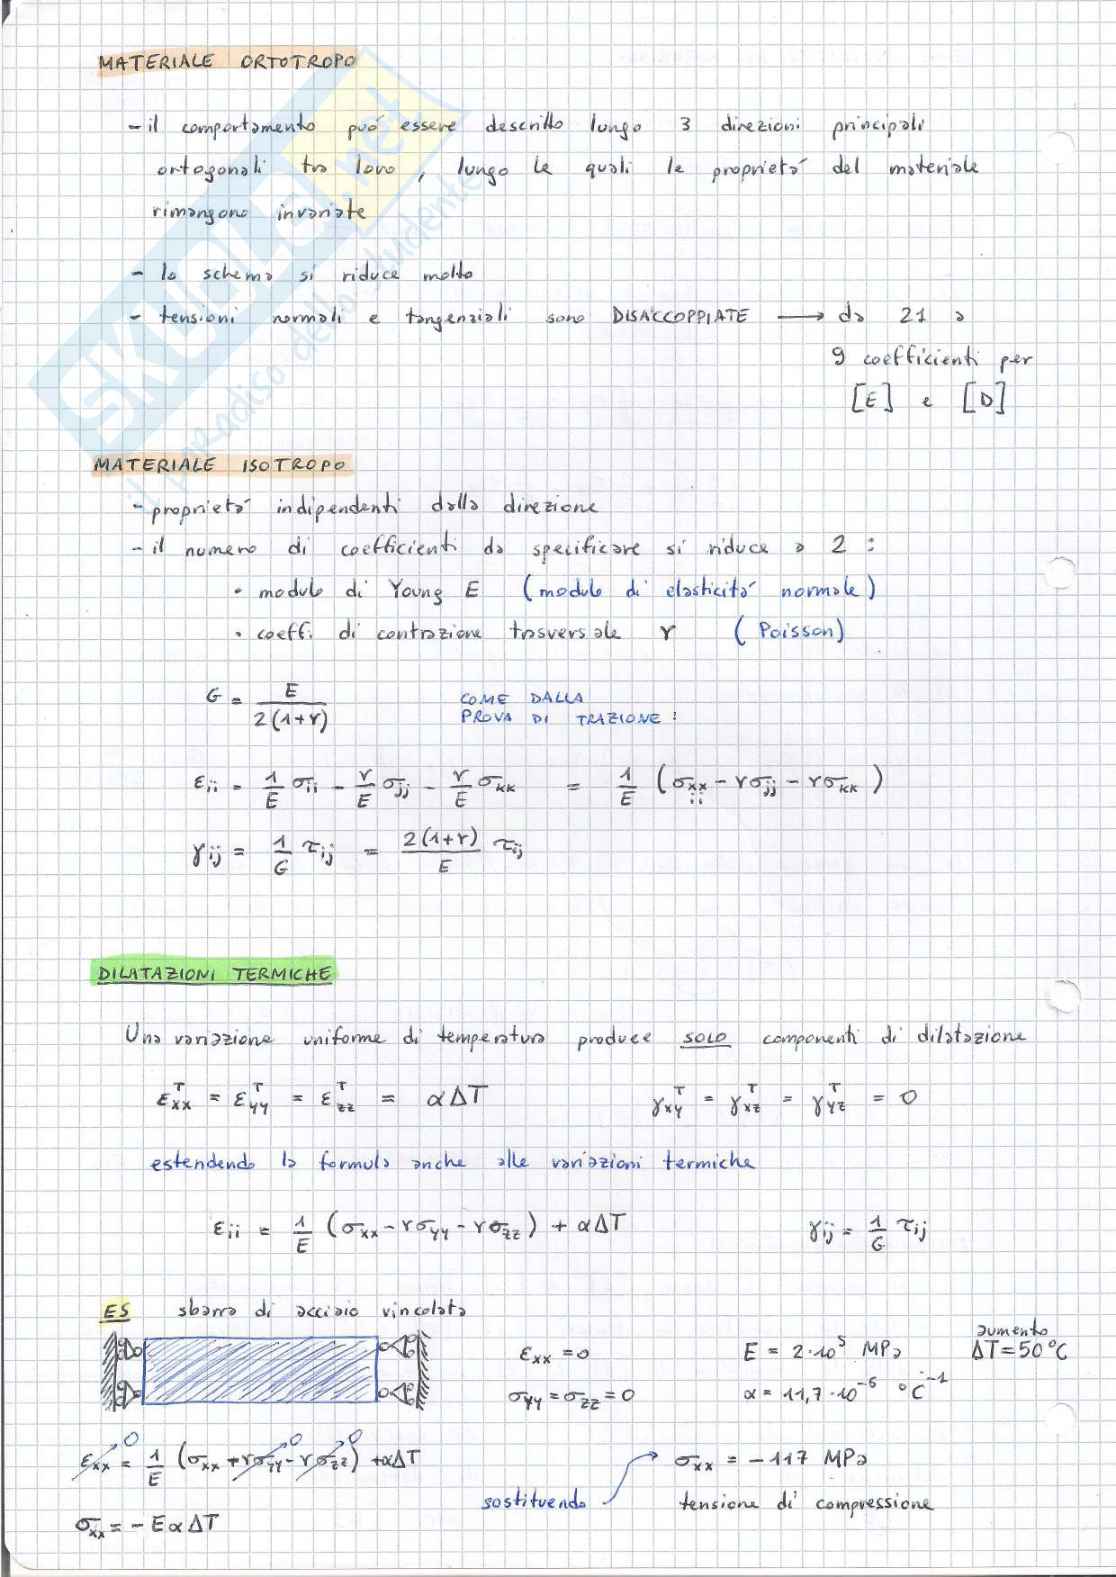 MATERIALE ORTOTROPO
- il comportamento può essere descritto lungo 3 direzioni principali
ortogonali tra loro, lungo le quali le proprietà del materiale
rimangono invariate
- lo schema si riduce molto
- tensioni normali e tangenziali sono DISACCOPPIATE → da 21 a
9 coefficienti per
[E] e [D]
SKUOLA.net
il paradiso dello studente
MATERIALE ISOTROPO
- proprietà indipendenti dalla direzione
- il numero di coefficienti da specificare si riduce a 2:
• modulo di Young E (modulo di elasticità normale)
• coeff. di contrazione trasversale ν (Poisson)
G = E / 2(1+ν) COME DALLA
PROVA DI TRAZIONE!
εii = 1/E σii - ν/E σjj - ν/E σkk = 1/E (σxx - νσjj - νσkk)
ii
γij = 1/G τij = 2(1+ν)/E τij
DILATAZIONI TERMICHE
Una variazione uniforme di temperatura produce SOLO componenti di dilatazione
εxx^T = εyy^T = εzz^T = αΔT γxy^T = γxz^T = γyz^T = 0
estendendo la formula anche alle variazioni termiche
εii = 1/E (σxx - νσyy - νσzz) + αΔT γij = 1/G τij
ES sbarra di acciaio vincolata
εxx = 0 E = 2·10^5 MPa aumento ΔT = 50 °C
σyy = σzz = 0 α = 11,7·10^-6 °C^-1
εxx 0 = 1/E (σxx + νσyy 0 - νσzz 0) + αΔT
σxx = -117 MPa
sostituendo tensione di compressione
σxx = - EαΔT